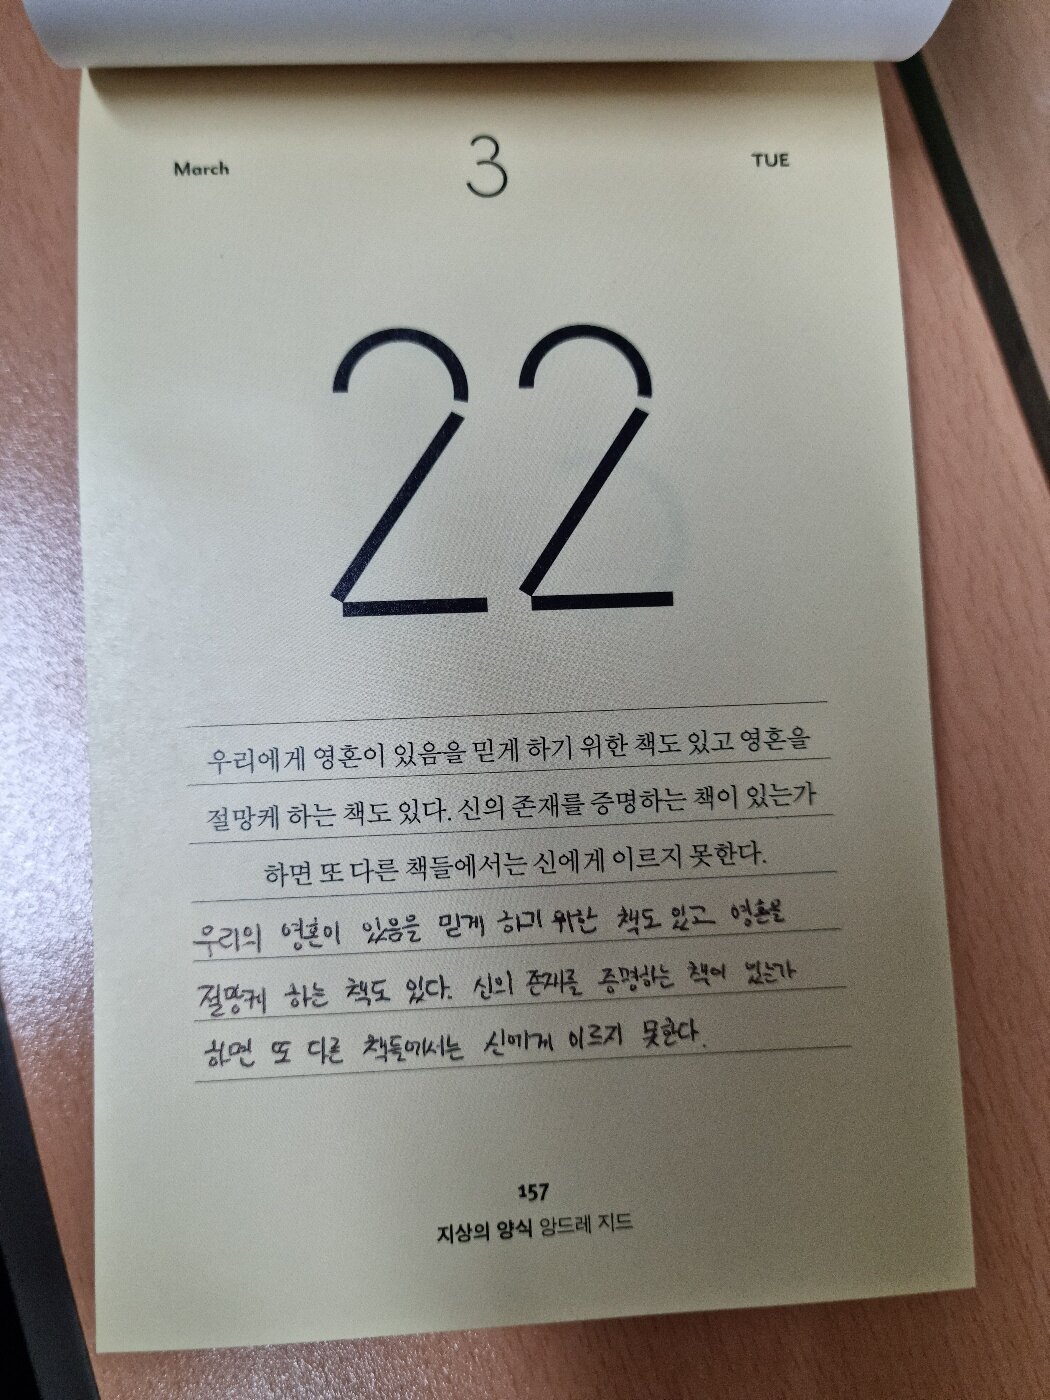 March 3 TUE
22
우리에게 영혼이 있음을 믿게 하기 위한 책도 있고 영혼을
절망케 하는 책도 있다. 신의 존재를 증명하는 책이 있는가
하면 또 다른 책들에서는 신에게 이르지 못한다.
우리의 영혼이 있음을 믿게 하기 위한 책도 있고 영혼을
절망케 하는 책도 있다. 신의 존재를 증명하는 책이 있는가
하면 또 다른 책들에서는 신에게 이르지 못한다.
157
지상의 양식 앙드레 지드